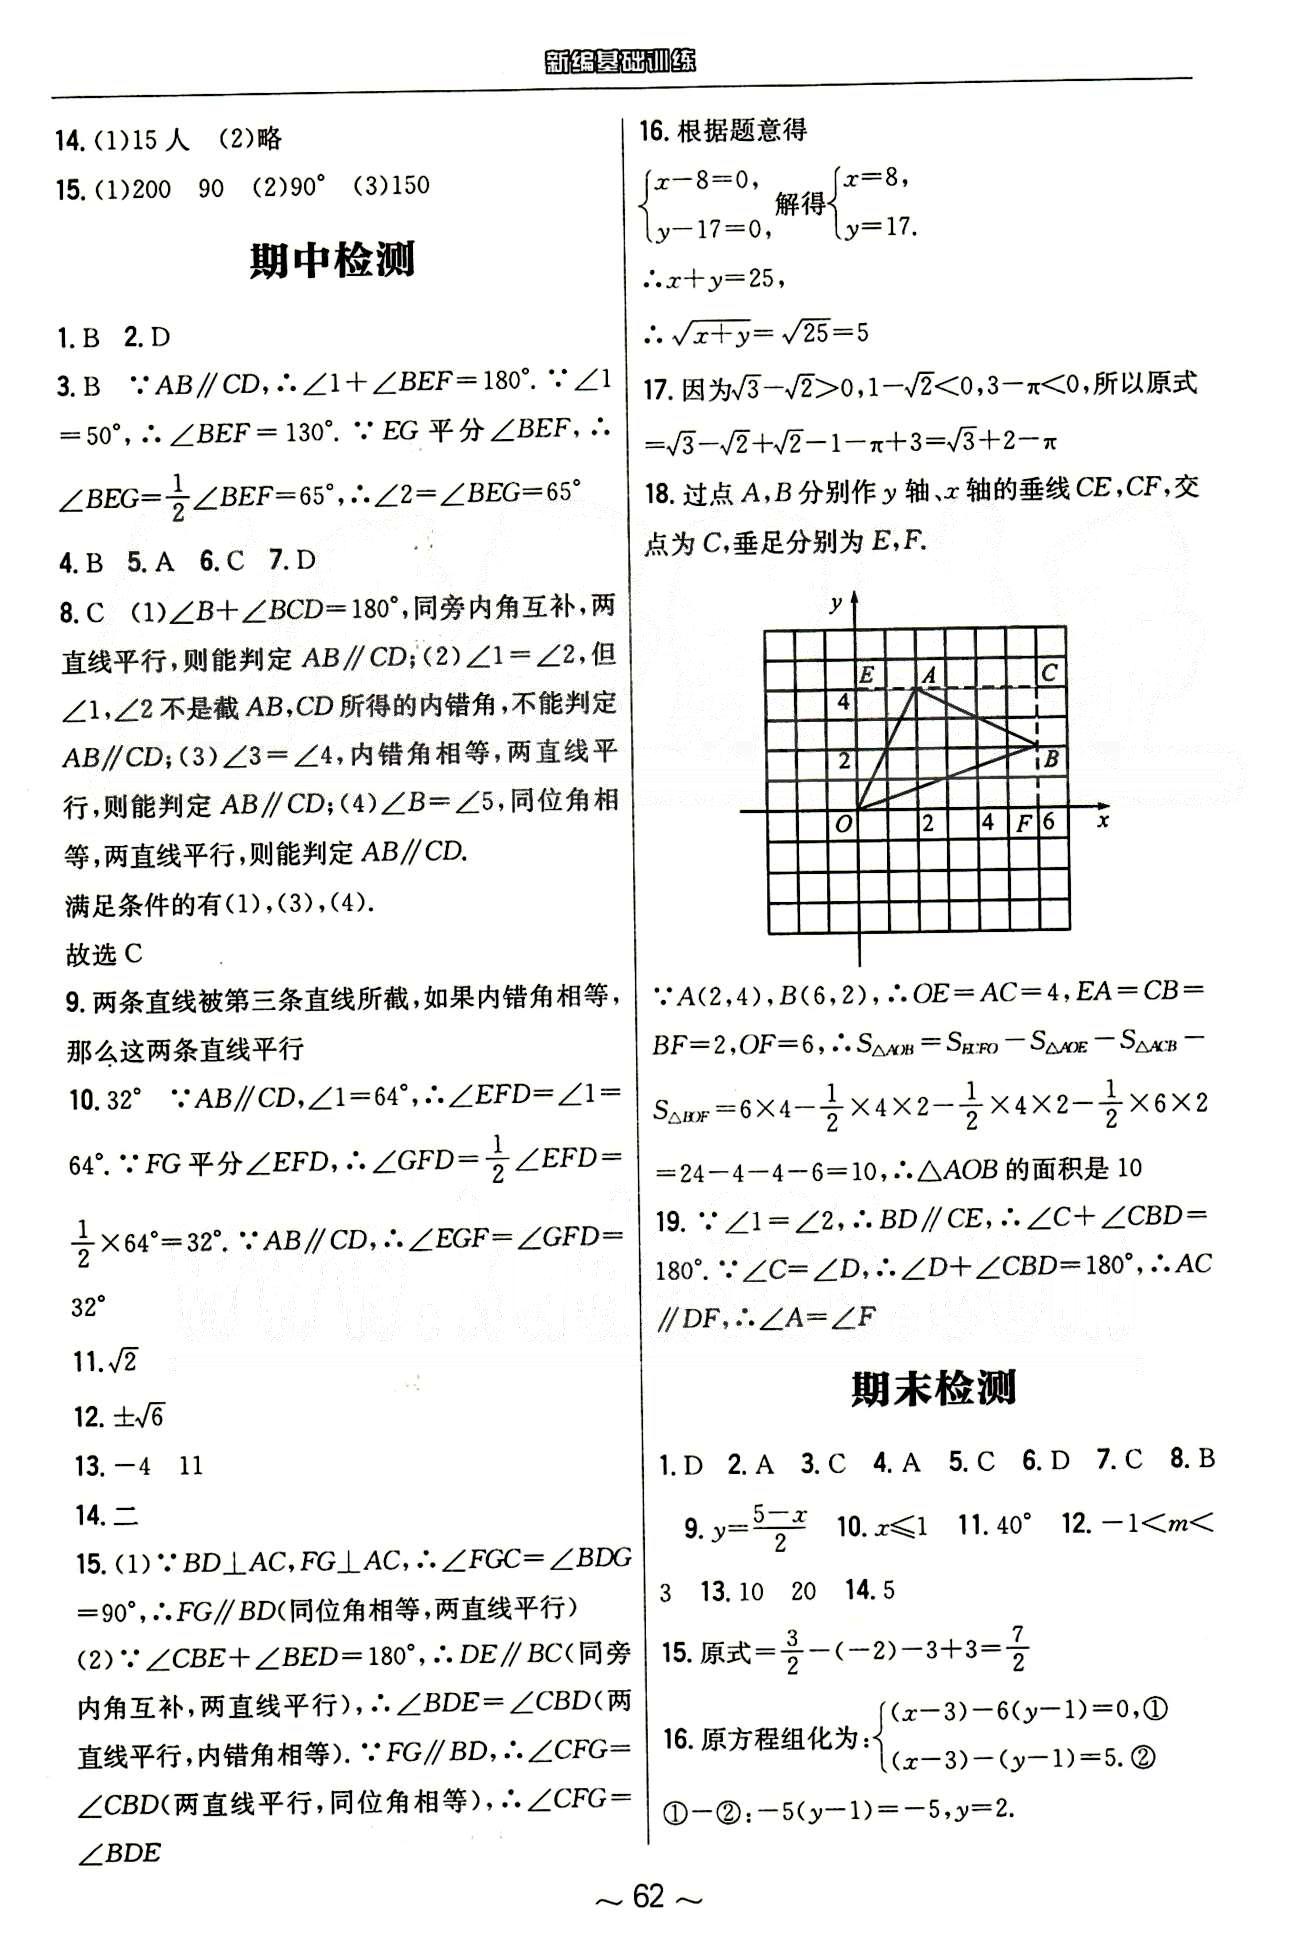 新编基础训练
14.(1)15人 (2)略
15.(1)200 90 (2)90° (3)150
期中检测
1.B 2.D
3.B ∵AB∥CD,∴∠1+∠BEF=180°.∵∠1
=50°,∴∠BEF=130°.∵EG平分∠BEF,∴
∠BEG=1/2∠BEF=65°,∴∠2=∠BEG=65°
4.B 5.A 6.C 7.D
8.C (1)∠B+∠BCD=180°,同旁内角互补,两
直线平行,则能判定AB∥CD;(2)∠1=∠2,但
∠1,∠2不是截AB,CD所得的内错角,不能判定
AB∥CD;(3)∠3=∠4,内错角相等,两直线平
行,则能判定AB∥CD;(4)∠B=∠5,同位角相
等,两直线平行,则能判定AB∥CD.
满足条件的有(1),(3),(4).
故选C
9.两条直线被第三条直线所截,如果内错角相等,
那么这两条直线平行
10.32° ∵AB∥CD,∠1=64°,∴∠EFD=∠1=
64°.∵FG平分∠EFD,∴∠GFD=1/2∠EFD=
1/2×64°=32°.∵AB∥CD,∴∠EGF=∠GFD=
32°
11.√2
12.±√6
13.-4 11
14.二
15.(1)∵BD⊥AC,FG⊥AC,∴∠FGC=∠BDG
=90°,∴FG∥BD(同位角相等,两直线平行)
(2)∵∠CBE+∠BED=180°,∴DE∥BC(同旁
内角互补,两直线平行),∴∠BDE=∠CBD(两
直线平行,内错角相等).∵FG∥BD,∴∠CFG=
∠CBD(两直线平行,同位角相等),∴∠CFG=
∠BDE
16.根据题意得
{x-8=0, y-17=0, 解得{x=8, y=17.
∴x+y=25,
∴√(x+y)=√25=5
17.因为√3-√2>0,1-√2<0,3-π<0,所以原式
=√3-√2+√2-1-π+3=√3+2-π
18.过点A,B分别作y轴、x轴的垂线CE,CF,交
点为C,垂足分别为E,F.
y
E A C
4
2 B
O 2 4 F 6 x
∵A(2,4),B(6,2),∴OE=AC=4,EA=CB=
BF=2,OF=6,∴S△AOB=SECFO-S△AOE-S△ACB-
S△BOF=6×4-1/2×4×2-1/2×4×2-1/2×6×2
=24-4-4-6=10,∴△AOB的面积是10
19.∵∠1=∠2,∴BD∥CE,∴∠C+∠CBD=
180°.∵∠C=∠D,∴∠D+∠CBD=180°,∴AC
∥DF,∴∠A=∠F
期末检测
1.D 2.A 3.C 4.A 5.C 6.D 7.C 8.B
9.y=(5-x)/2 10.x≤1 11.40° 12.-1<m<
3 13.10 20 14.5
15.原式=3/2-(-2)-3+3=7/2
16.原方程组化为:{(x-3)-6(y-1)=0,① (x-3)-(y-1)=5.②
①-②:-5(y-1)=-5,y=2.
~62~